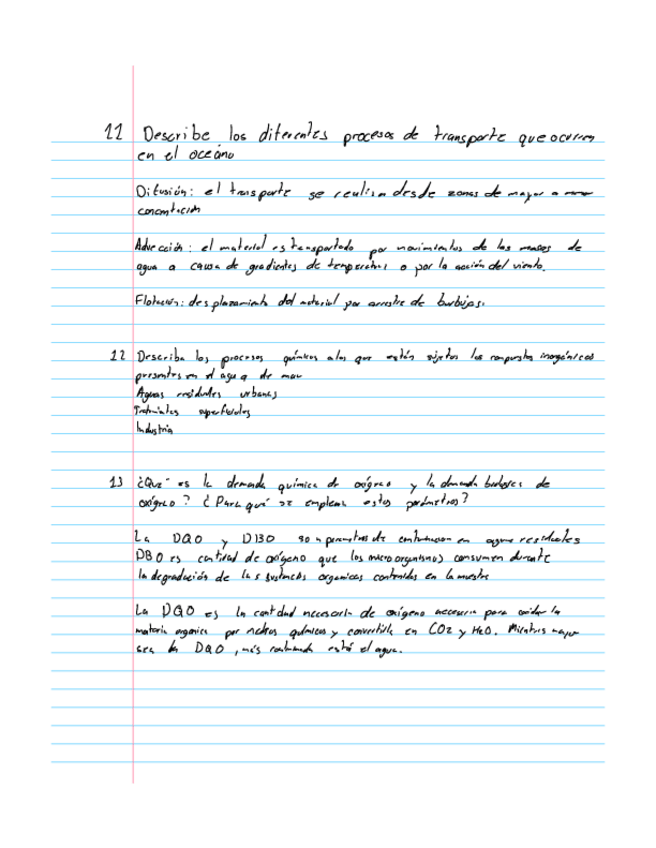 11 Describe los diferentes procesos de transporte que ocurren
en el oceano
Difusión: el transporte se realiza desde zonas de mayor a menor
concentración
Advección: el material es transportado por movimientos de las masas de
agua a causa de gradientes de temperatura o por la acción del viento.
Flotación: desplazamiento del material por arrastre de burbujas.
12 Describa los procesos químicos a los que están sujetos los compuestos inorgánicos
presentes en el agua de mar
Aguas residuales urbanas
superficiales
Industria
13 ¿Qué es la demanda química de oxígeno y la demanda de
oxígeno? ¿Para qué se emplean estos parámetros?
La DQO y DBO son parametros de contaminacion en aguas residuales
DBO es cantidad de oxígeno que los microorganismos consumen durante
la degradación de las sustancias organicas contenidas en la muestra
La DQO es la cantidad necesaria de oxígeno necesaria para oxidar la
materia organica por medios químicos y convertirla en CO2 y H2O. Mientras mayor
sea la DQO, más contaminada está el agua.